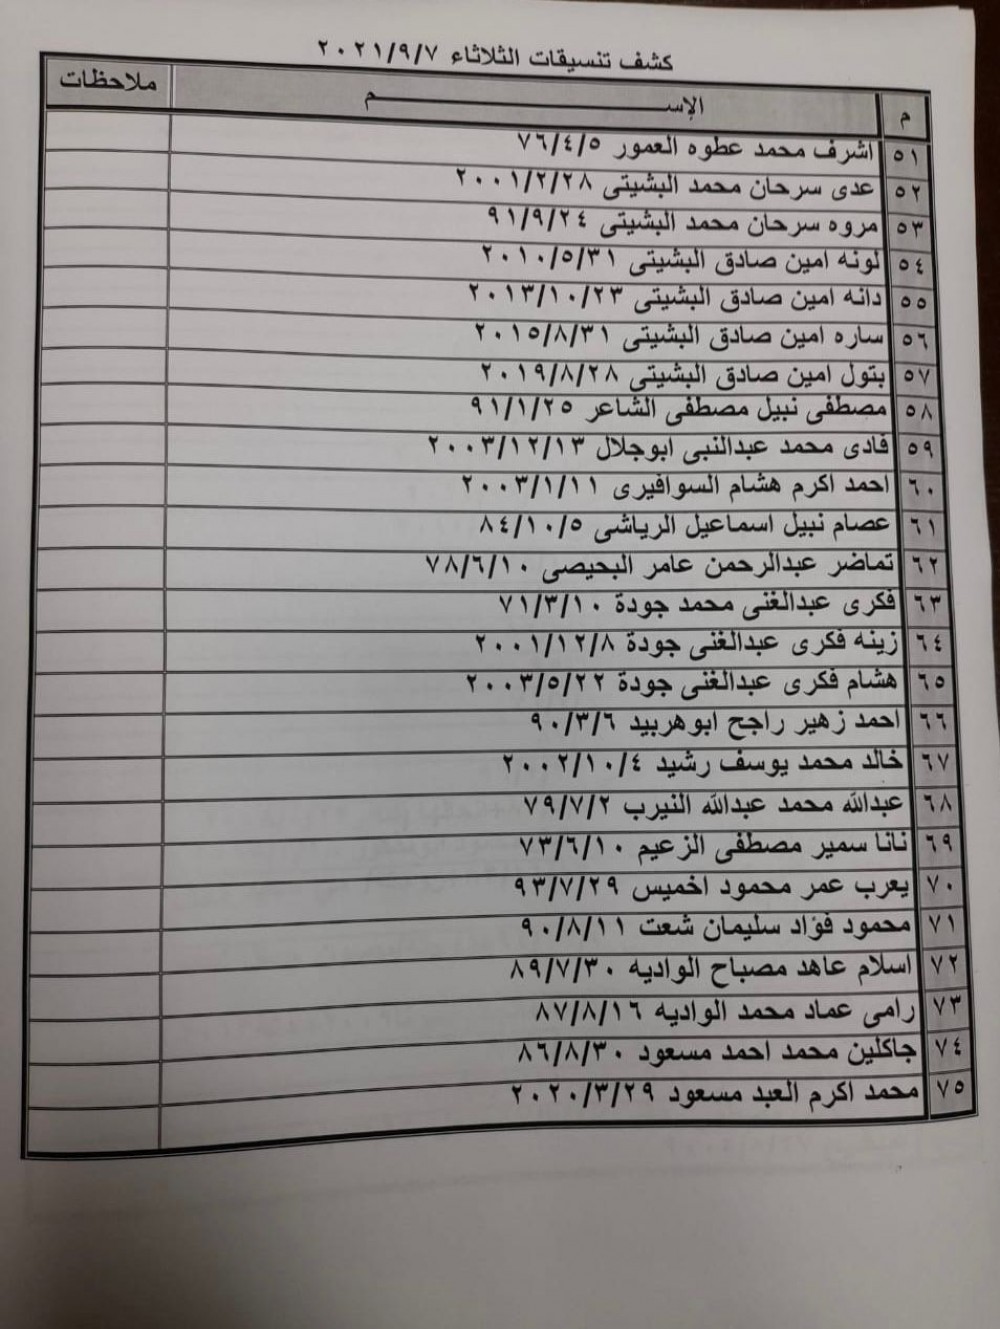 كشف تنسيقات الثلاثاء ٢٠٢١/٩/٧
م الإســـــــــــــــــــــــــــــــــــــــــم ملاحظات
٥١ اشرف محمد عطوه العمور ٧٦/٤/٥
٥٢ عدى سرحان محمد البشيتى ٢٠٠١/٢/٢٨
٥٣ مروه سرحان محمد البشيتى ٩١/٩/٢٤
٥٤ لونه امين صادق البشيتى ٢٠١٠/٥/٣١
٥٥ دانه امين صادق البشيتى ٢٠١٣/١٠/٢٣
٥٦ ساره امين صادق البشيتى ٢٠١٥/٨/٣١
٥٧ بتول امين صادق البشيتى ٢٠١٩/٨/٢٨
٥٨ مصطفى نبيل مصطفى الشاعر ٩١/١/٢٥
٥٩ فادى محمد عبدالنبى ابوجلال ٢٠٠٣/١٢/١٣
٦٠ احمد اكرم هشام السوافيرى ٢٠٠٣/١/١١
٦١ عصام نبيل اسماعيل الرياشى ٨٤/١٠/٥
٦٢ تماضر عبدالرحمن عامر البحيصى ٧٨/٦/١٠
٦٣ فكرى عبدالغنى محمد جودة ٧١/٣/١٠
٦٤ زينه فكرى عبدالغنى جودة ٢٠٠١/١٢/٨
٦٥ هشام فكرى عبدالغنى جودة ٢٠٠٣/٥/٢٢
٦٦ احمد زهير راجح ابوهربيد ٩٠/٣/٦
٦٧ خالد محمد يوسف رشيد ٢٠٠٢/١٠/٤
٦٨ عبدالله محمد عبدالله النيرب ٧٩/٧/٢
٦٩ نانا سمير مصطفى الزعيم ٧٣/٦/١٠
٧٠ يعرب عمر محمود اخميس ٩٣/٧/٢٩
٧١ محمود فؤاد سليمان شعت ٩٠/٨/١١
٧٢ اسلام عاهد مصباح الواديه ٨٩/٧/٣٠
٧٣ رامى عماد محمد الواديه ٨٧/٨/١٦
٧٤ جاكلين محمد احمد مسعود ٨٦/٨/٣٠
٧٥ محمد اكرم العبد مسعود ٢٠٢٠/٣/٢٩